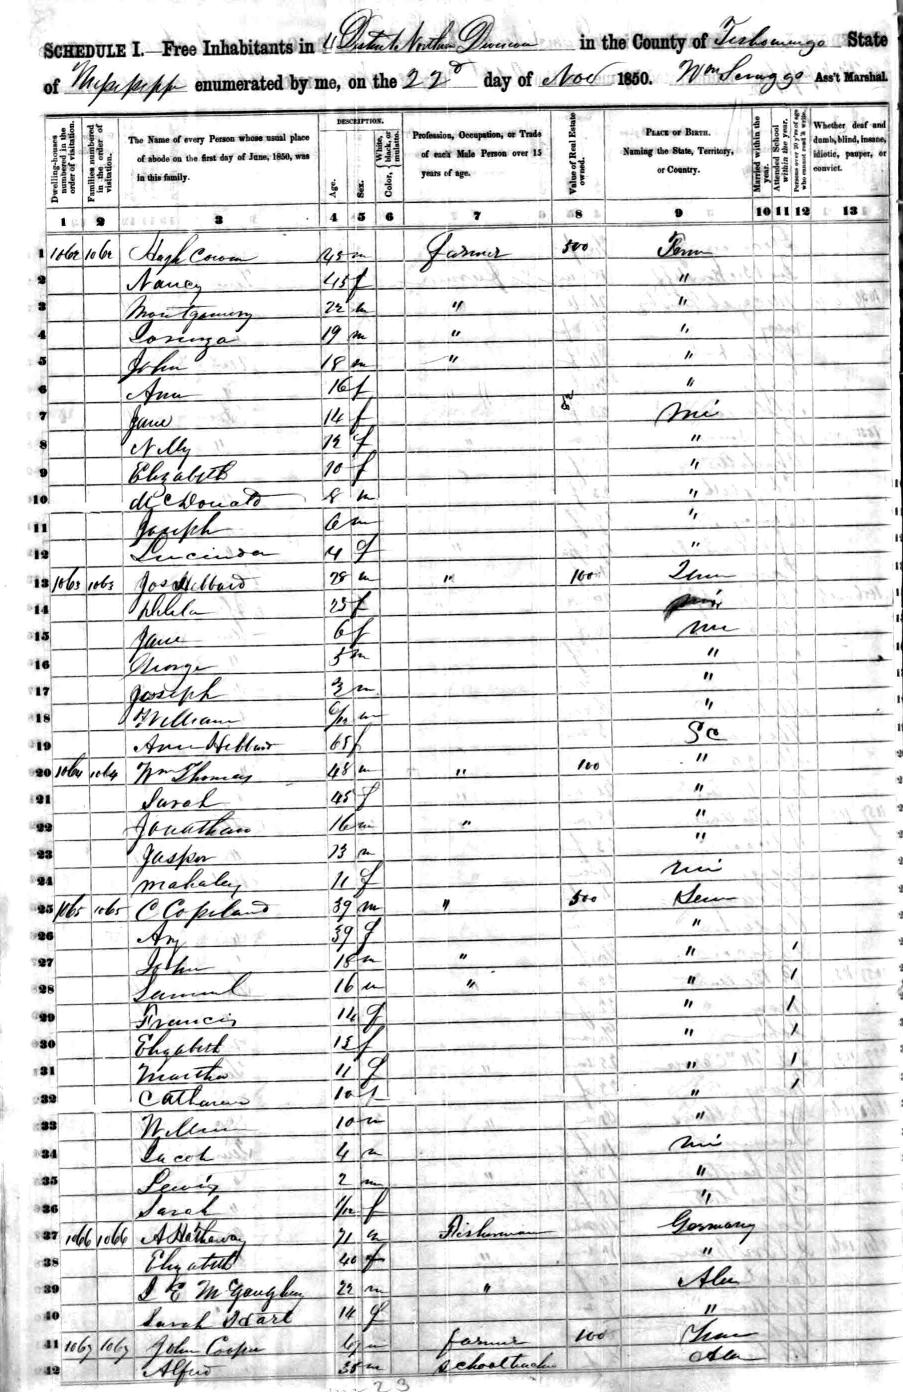 SCHEDULE I.—Free Inhabitants in 4 District Northern Division in the County of Tishomingo State
of Mississippi enumerated by me, on the 22d day of Nov 1850. Wm Scruggs Ass't Marshal.
Dwelling-houses numbered in the order of visitation.
Families numbered in the order of visitation.
The Name of every Person whose usual place of abode on the first day of June, 1850, was in this family.
DESCRIPTION.
Age.
Sex.
Color, White, black, or mulatto.
Profession, Occupation, or Trade of each Male Person over 15 years of age.
Value of Real Estate owned.
PLACE OF BIRTH. Naming the State, Territory, or Country.
Married within the year.
Attended School within the year.
Persons over 20 y'rs of age who cannot read & write.
Whether deaf and dumb, blind, insane, idiotic, pauper, or convict.
1 2 3 4 5 6 7 8 9 10 11 12 13
1 1062 1062 Hugh Cowan 45 m farmer 500 Tenn
2 Nancy 45 f "
3 Montgomery 22 m " "
4 Lorenzo 19 m " "
5 John 18 m " "
6 Ann 16 f "
7 Jane 14 f Mi
8 Nelly 12 f "
9 Elizabeth 10 f "
10 McDonald 8 m "
11 Joseph 6 m "
12 Lucinda 4 f "
13 1063 1063 Jos Hebbard 28 m " 100 Tenn
14 23 f
15 Jane 6 f Mi
16 George 5 m "
17 Joseph 3 m "
18 William 6/12 m "
19 Ann Hebbard 65 f SC
20 1064 1064 Wm Thomas 48 m " 100 "
21 Sarah 45 f "
22 Jonathan 16 m " "
23 Jasper 13 m "
24 Mahaley 11 f Mi
25 1065 1065 C Copeland 39 m " 500 Tenn
26 Ary 39 f "
27 John 18 m " " 1
28 Samuel 16 m " " 1
29 Francis 14 f " 1
30 Elizabeth 13 f " 1
31 Martha 11 f " 1
32 Catharine 10 f " 1
33 William 10 m "
34 Jacob 4 m Mi
35 Lewis 2 m "
36 Sarah f "
37 1066 1066 A Hathaway 71 m Fisherman Germany
38 Elizabeth 40 f "
39 McGaughey 22 m " Ala
40 Sarah 14 f "
41 1067 1067 John Cooper m farmer 100
42 Alfred 35 m School teacher Ala
23